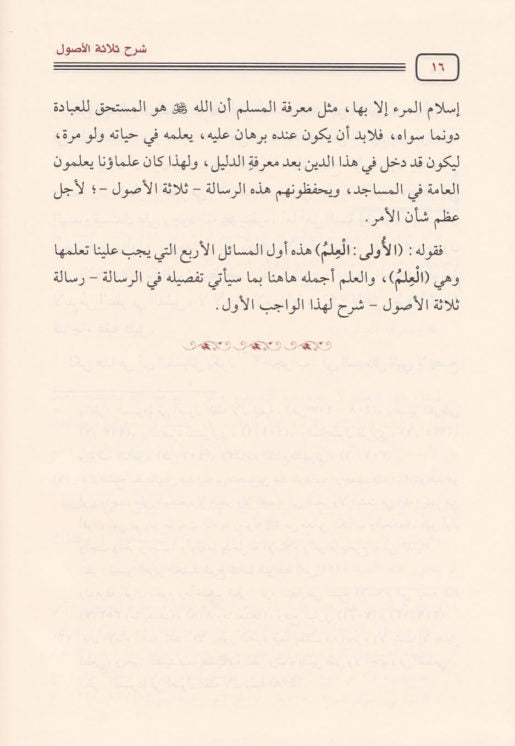 شرح ثلاثة الأصول
١٦
إسلام المرء إلا بها، مثل معرفة المسلم أن الله ﷻ هو المستحق للعبادة
دونما سواه، فلابد أن يكون عنده برهان عليه، يعلمه في حياته ولو مرة،
ليكون قد دخل في هذا الدين بعد معرفةِ الدليل، ولهذا كان علماؤنا يعلمون
العامة في المساجد، ويحفظونهم هذه الرسالة - ثلاثة الأصول -؛ لأجل
عظم شأن الأمر.
فقوله: (الأُولى: الْعِلمُ) هذه أول المسائل الأربع التي يجب علينا تعلمها
وهي (الْعِلمُ)، والعلم أجمله هاهنا بما سيأتي تفصيله في الرسالة - رسالة
ثلاثة الأصول - شرح لهذا الواجب الأول.